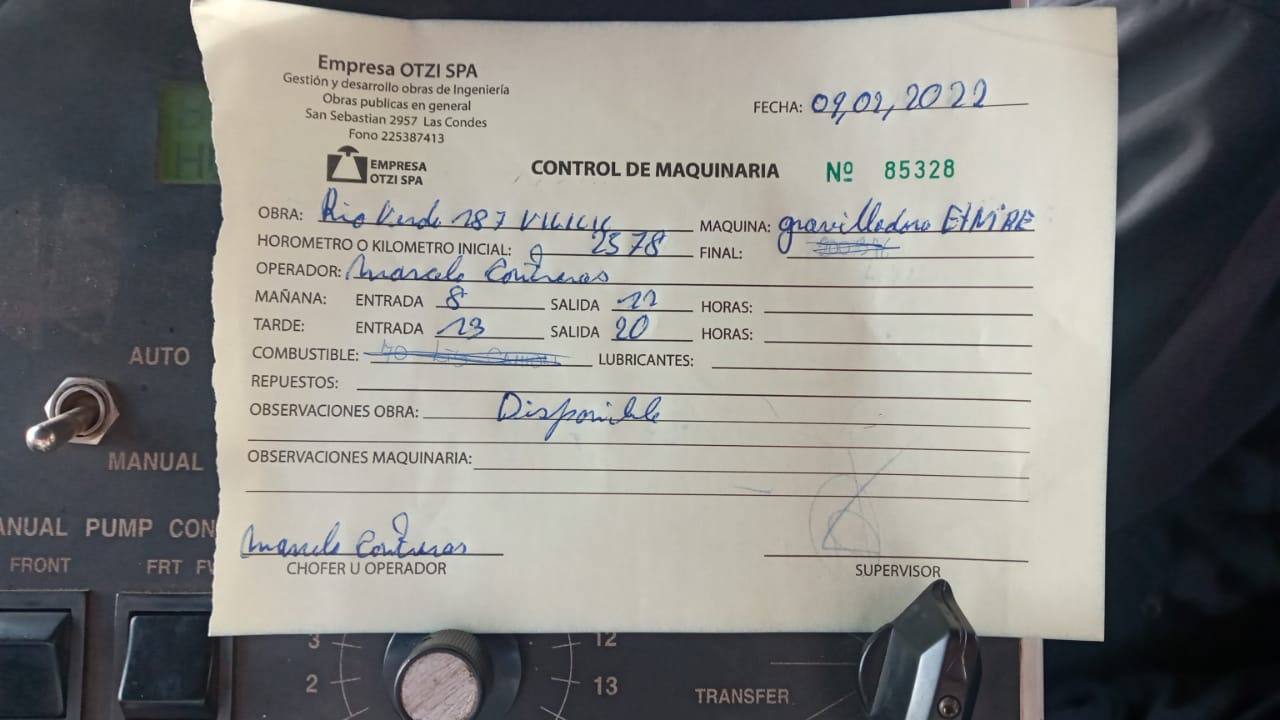 Empresa OTZI SPA
Gestión y desarrollo obras de Ingeniería
Obras publicas en general
San Sebastian 2957 Las Condes
Fono 225387413
EMPRESA
OTZI SPA
FECHA: 09,02,2022
CONTROL DE MAQUINARIA Nº 85328
OBRA: Rio Verde 187 MAQUINA: gravilladora
HOROMETRO O KILOMETRO INICIAL: 2578 FINAL:
OPERADOR: Marcelo Contreras
MAÑANA: ENTRADA 8 SALIDA 12 HORAS:
TARDE: ENTRADA 13 SALIDA 20 HORAS:
COMBUSTIBLE: LUBRICANTES:
REPUESTOS:
OBSERVACIONES OBRA: Disponible
OBSERVACIONES MAQUINARIA:
Marcelo Contreras
CHOFER U OPERADOR
SUPERVISOR
AUTO
MANUAL
ANUAL PUMP CON
FRONT FRT
3 12
2 13
TRANSFER